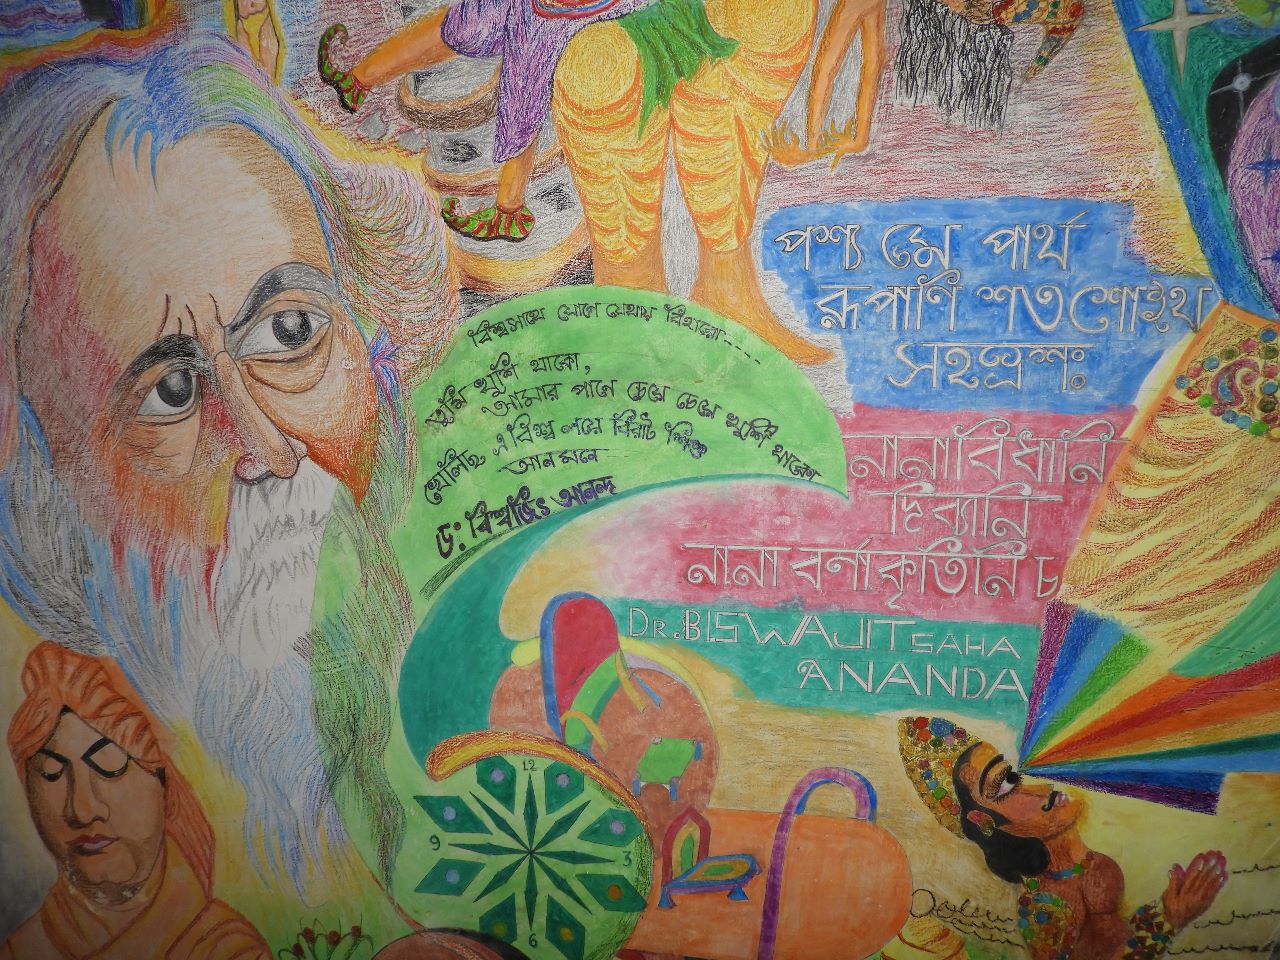 বিশ্বসাথে যোগে যেথায় বিহারো.....
তুমি খুশি থাকো,
আমার পানে চেয়ে চেয়ে খুশি থাকো
খেলিছ এ বিশ্ব লয়ে বিরাট শিশু
আনমনে
ড: বিশ্বজিৎ আনন্দ
পশ্য মে পার্থ
রূপাণি শতশোইথ
সহস্রশঃ
নানাবিধানি
দিব্যানি
নানা বর্ণাকৃতিনি চ
DR. BISWAJIT SAHA
ANANDA
12
9
3
6